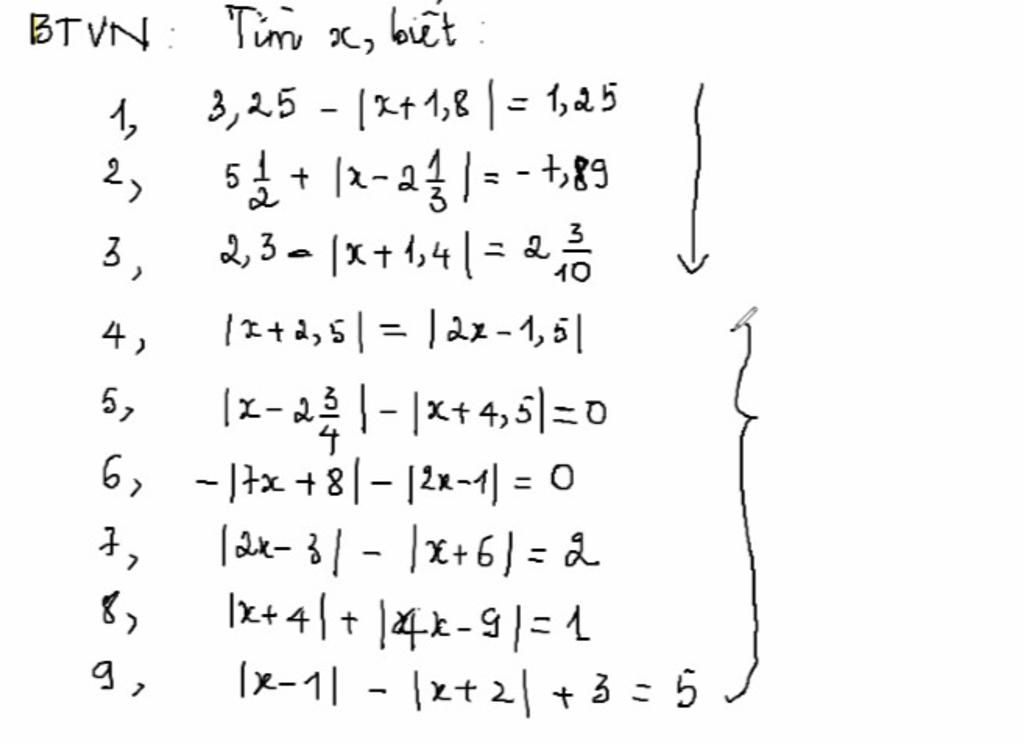 BTVN: Tìm x, biết:
1, 3,25 - |x+1,8| = 1,25
2, 5 1/2 + |x - 2 1/3| = -7,89
3, 2,3 - |x + 1,4| = 2 3/10
4, |x+2,5| = |2x-1,5|
5, |x - 2 3/4| - |x+4,5| = 0
6, -|7x+8| - |2x-1| = 0
7, |2x-3| - |x+6| = 2
8, |x+4| + |4x-9| = 1
9, |x-1| - |x+2| + 3 = 5